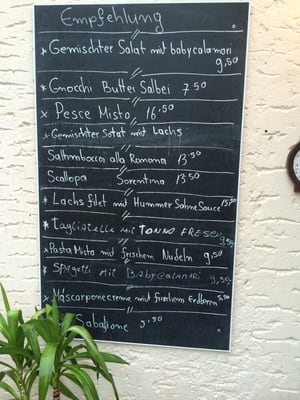 Empfehlung
* Gemischter Salat mit babycalamari
9,50
* Gnocchi Butter Salbei 7,50
* Pesce Misto 16,50
* Gemischter Salat mit Lachs
Saltimbocca alla Romana 13,50
Scallopa Sorentina 13,50
* Lachsfilet mit Hummer Sahne Sauce
* Tagliatelle mit TONNO FRESCO 9,50
* Pasta Mista mit frischem Nudeln 9,50
* Spagetti mit Babycalamari 9,50
* Mascarponecreme mit frischem Erdberen 5,50
Sabaione 9,50